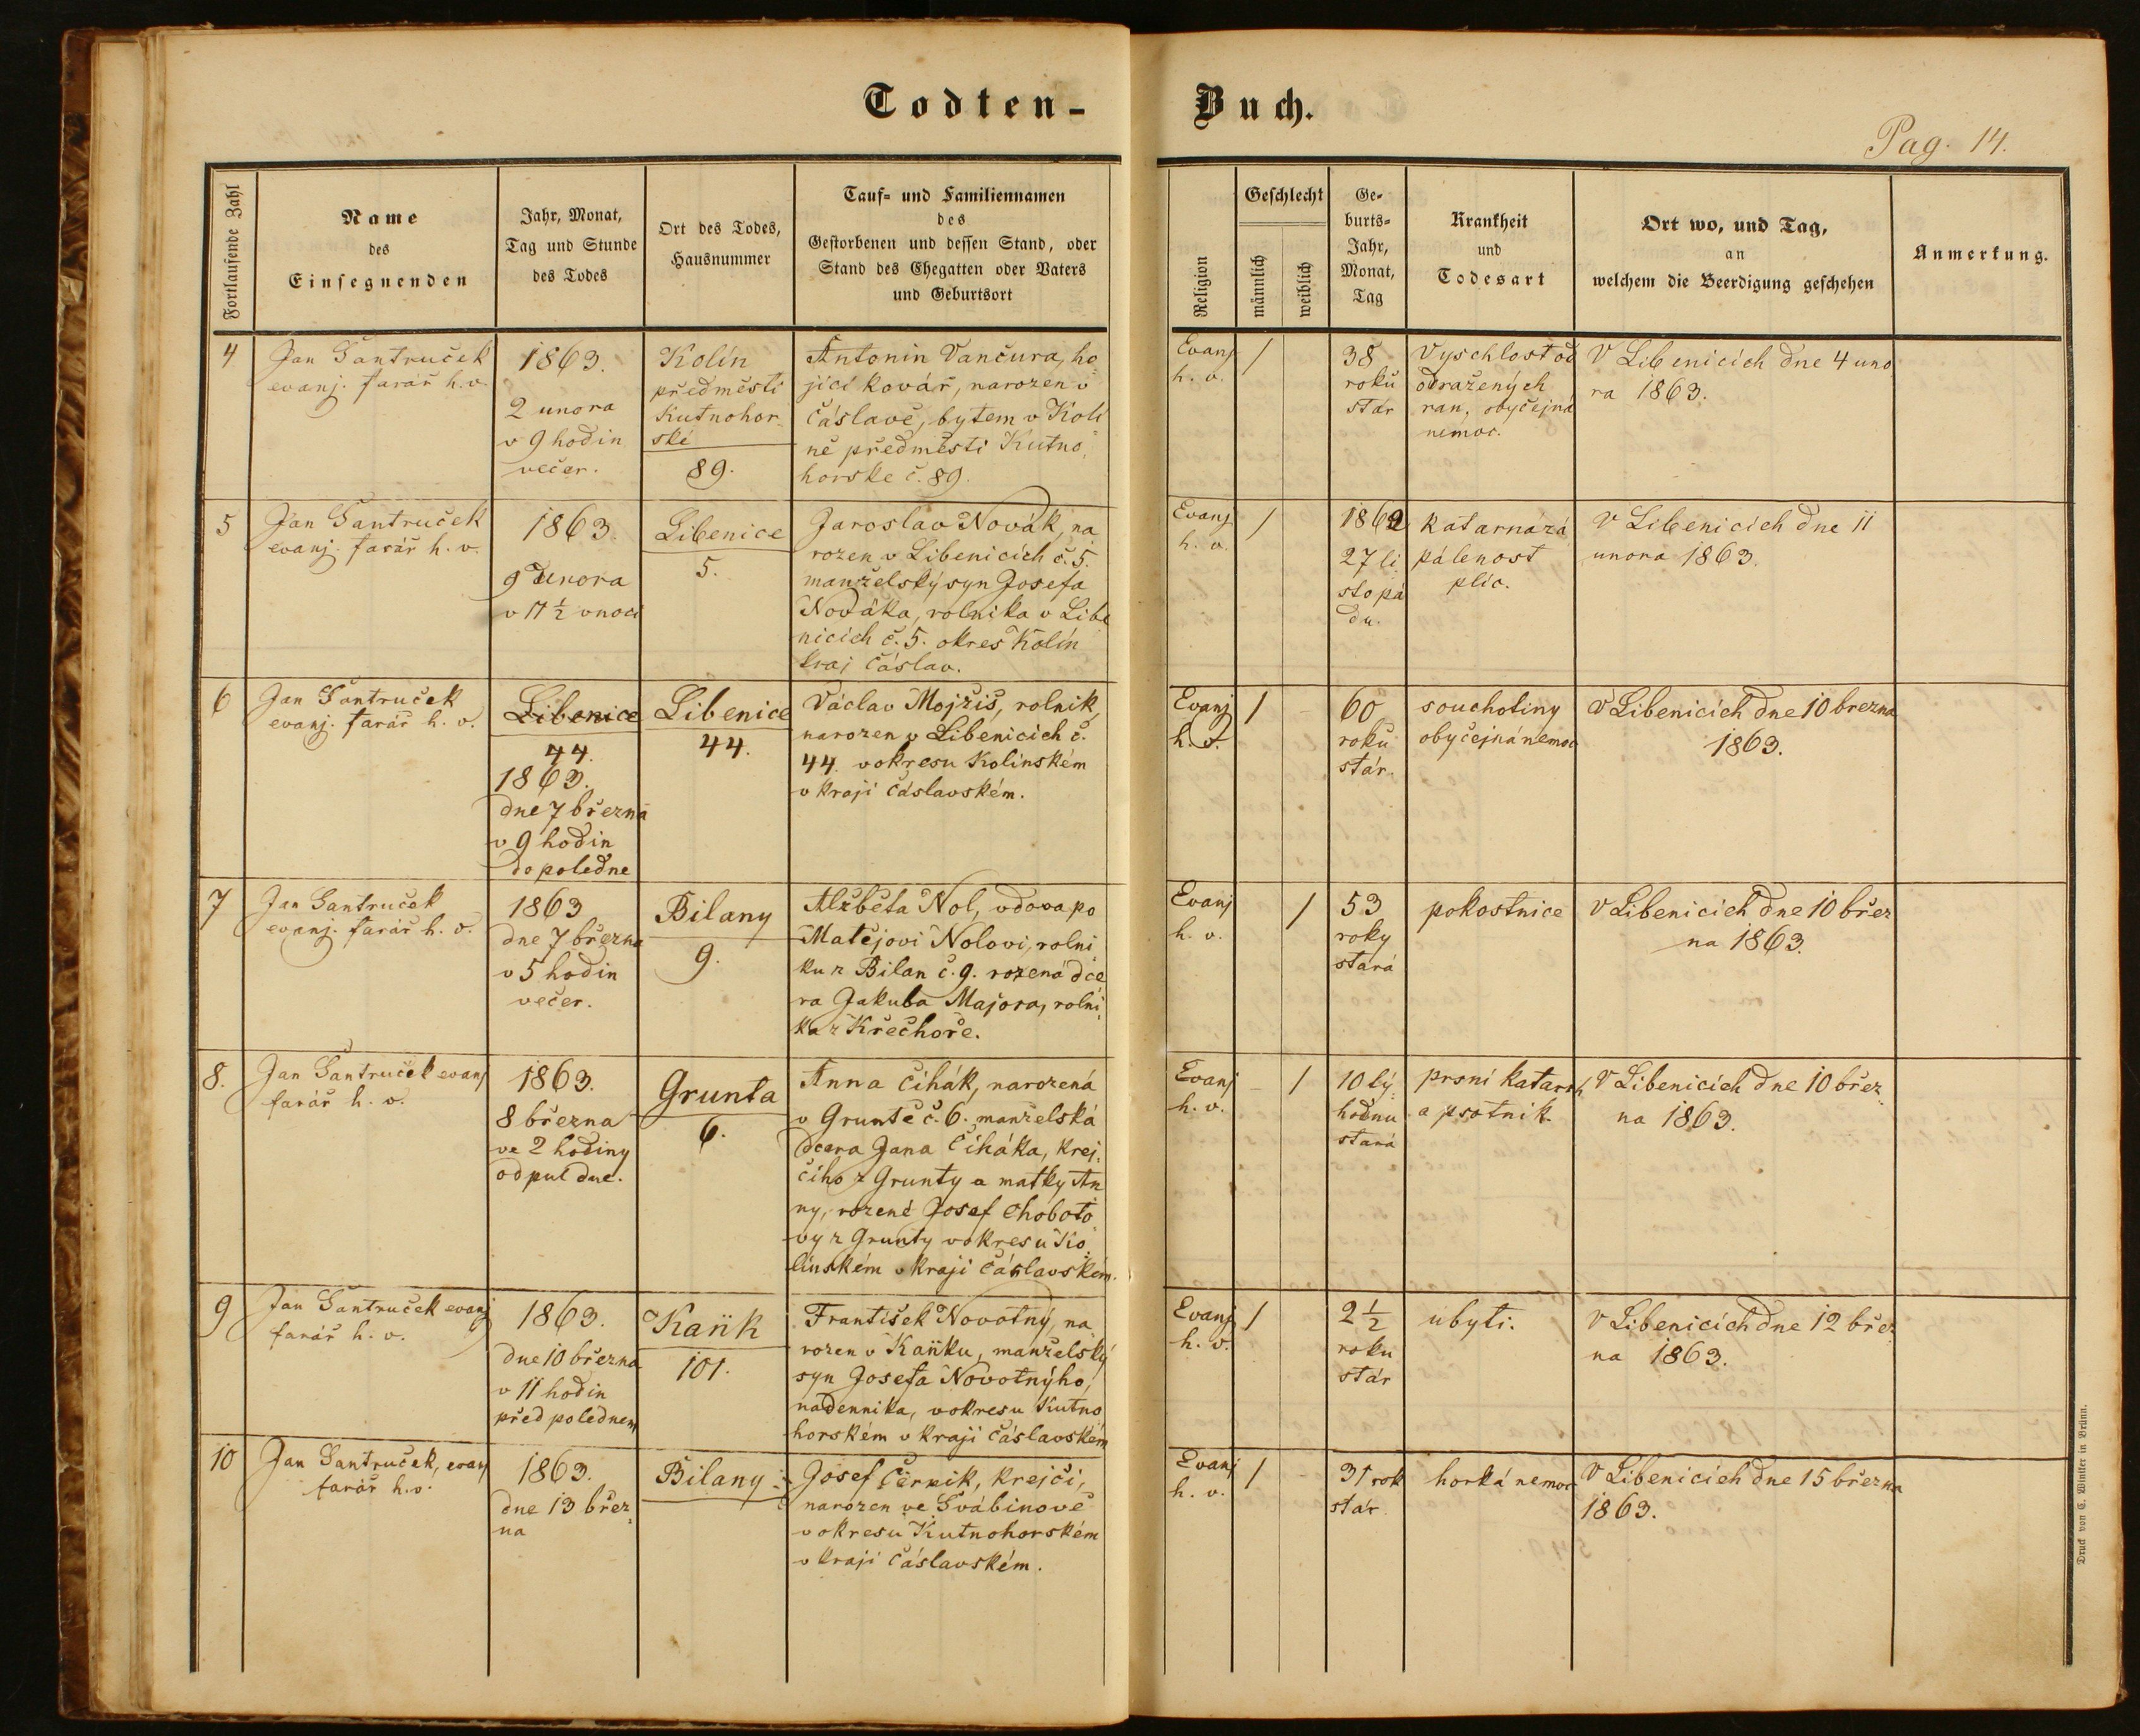 Todten-Buch.
Pag. 14.
Fortlaufende Zahl
Name
des
Einsegnenden
Jahr, Monat,
Tag und Stunde
des Todes
Ort des Todes,
Hausnummer
Tauf- und Familiennamen
des
Gestorbenen und dessen Stand, oder
Stand des Ehegatten oder Vaters
und Geburtsort
Religion
Geschlecht
männlich
weiblich
Ge-
burts-
Jahr,
Monat,
Tag
Krankheit
und
Todesart
Ort wo, und Tag,
an
welchem die Beerdigung geschehen
Anmerkung.
4
Jan Šantruček
evanj. farář h. v.
1863.
2 unora
v 9 hodin
večer.
Kolín
předměstí
Kutnohor
ské
89.
Antonin Vančura, ho
jící kovář, narozen v
Čáslavě, bytem v Kolí
ně předměsti Kutno
horske č. 89.
Evanj
h. v.
/
38
roků
stár
Vyschlost od
obražených
ran, obyčejná
nemoc.
V Libenicích dne 4 uno
ra 1863.
5
Jan Šantruček
evanj. farář h. v.
1863.
9 unora
v 11 ½ v noci
Libenice
5.
Jaroslav Novák, na
rozen v Libenicích č. 5.
manželský syn Josefa
Nováka, rolnika v Libe
nicích č. 5. okres Kolín
kraj Čáslav.
Evanj
h. v.
/
1862
27 li
stopa
du.
katarnázá
pálenost
plic.
V Libenicích dne 11
unora 1863.
6
Jan Šantruček
evanj. farář h. v.
Libenice
44.
1863.
dne 7 března
v 9 hodin
dopoledne
Libenice
44.
Václav Mojžiš, rolnik,
narozen v Libenicích č.
44. v okresu Kolínském
v kraji Čáslavském.
Evanj
h. v.
/
60
roků
stár.
souchotiny
obyčejná nemoc
V Libenicích dne 10 brezna
1863.
7
Jan Šantruček
evanj. farář h. v.
1863
dne 7 března
v 5 hodin
večer.
Bilany
9.
Alžběta Nol, vdova po
Matějovi Nolovi, rolni
ku z Bilan č. 9. rozená dce
ra Jakuba Majora, rolni
ka z Křečhoře.
Evanj
h. v.
/
53
roky
stará
pokostnice
V Libenicích dne 10 břez
na 1863.
8.
Jan Šantruček evanj
farář h. v.
1863.
8 března
ve 2 hodiny
od pul dne.
Grunta
6.
Anna Čihák, narozená
v Gruntě č. 6. manželská
dcera Jana Čiháka, krej-
čího z Grunty a matky An
ny, rozené Josef Choboto
vy z Grunty v okresu Ko
línském v kraji Čáslavském.
Evanj
h. v.
/
10 tý
hodnu
stará
prsní katarrh
a psotnik.
V Libenicích dne 10 břez
na 1863.
9
Jan Šantruček evanj
farář h. v.
1863.
dne 10 března
v 11 hodin
před polednem
Kaňk
101.
František Novotný, na
rozen v Kaňku, manželský
syn Josefa Novotnýho,
nadennika, v okresu Kutno
horském v kraji Čáslavském
Evanj
h. v.
/
2 ½
roku
stár
ubyti.
V Libenicích dne 12 břez
na 1863.
10
Jan Šantruček, evanj
farář h. v.
1863.
dne 13 břez
na
Bilany
Josef Černik, krejči,
narozen ve Švábinově
v okresu Kutnohorském
v kraji Čáslavském.
Evanj
h. v.
/
31 rok
stár
horká nemoc
V Libenicích dne 15 března
1863.
Druck von C. Winiker in Brünn.